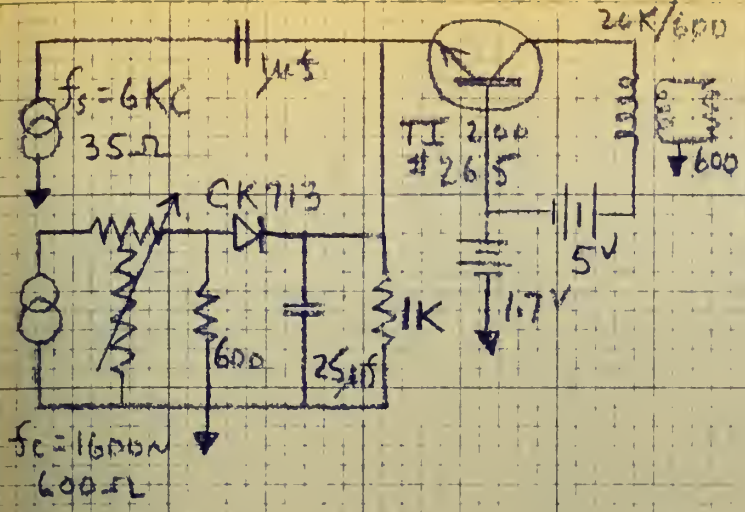 20K/600
μf
fs=6KC
35Ω
TI 200
#265
600
CK713
5V
1.7V
1K
600
25μf
fc=1600~
600Ω